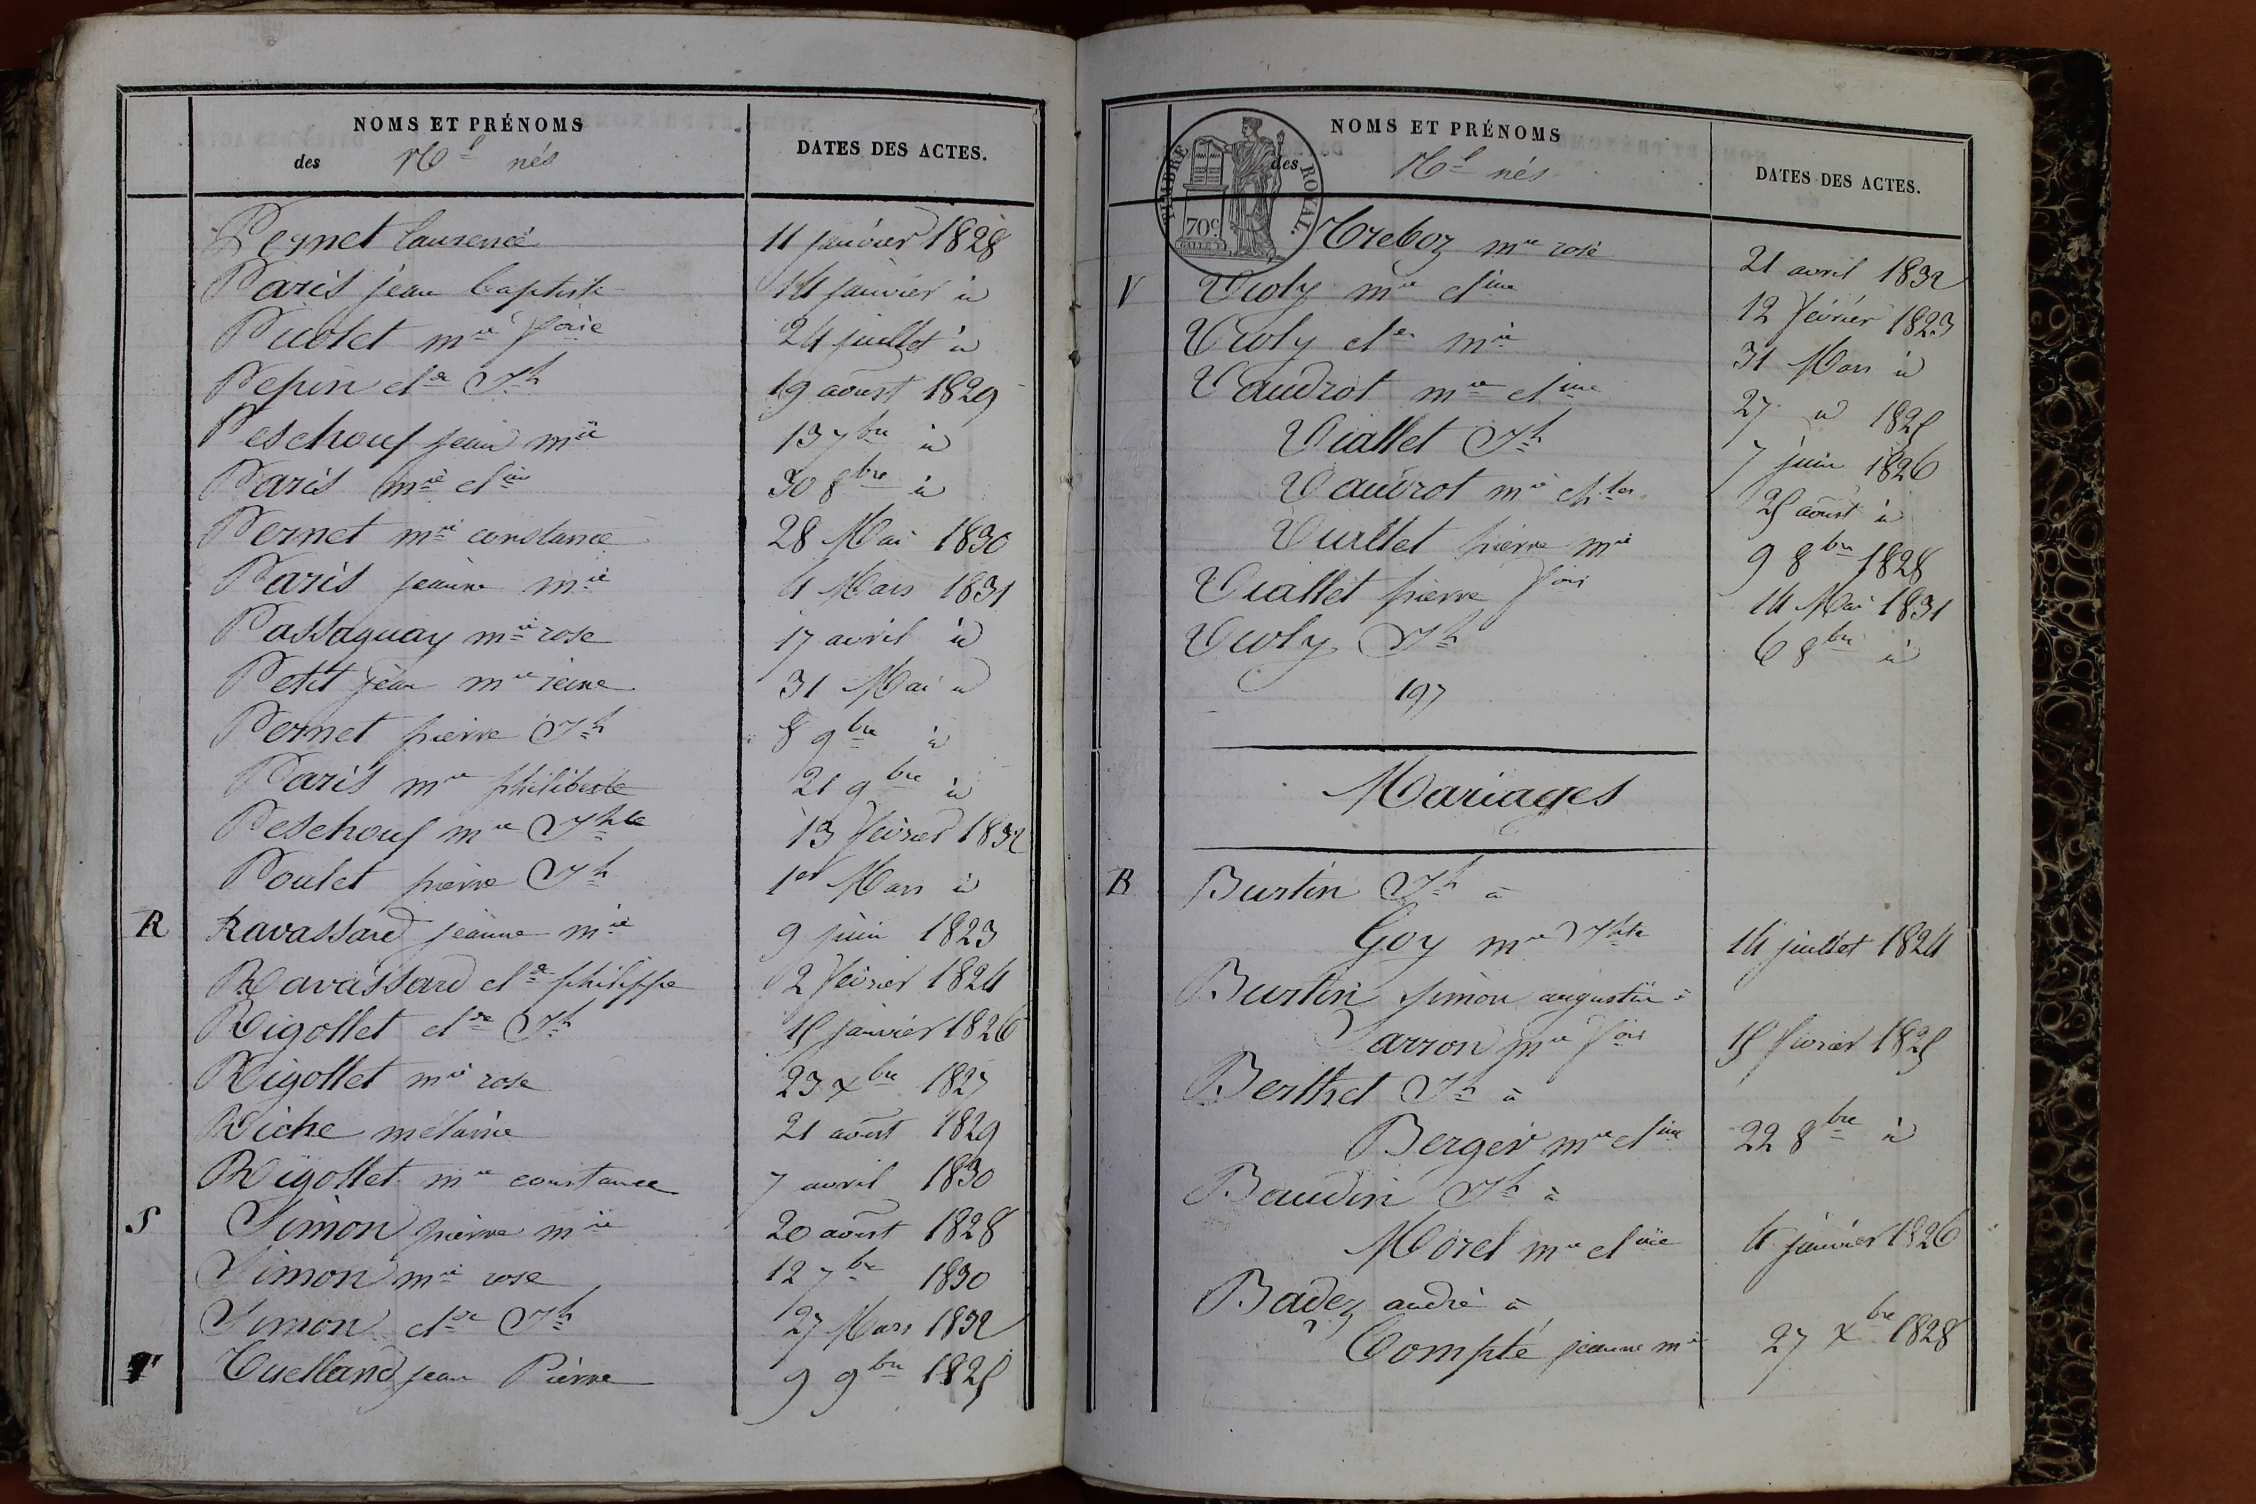 NOMS ET PRÉNOMS
des nés
DATES DES ACTES.
Pernet laurence 11 janvier 1828
Paris jean baptiste 14 janvier id
Picolet mie foise 24 juillet id
Pepin clde Jh 19 aoust 1829
Peschouf jean mie 13 7bre id
Paris mie cline 30 8bre id
Pernet mie constance 28 Mai 1830
Paris jeanne mie 4 Mars 1831
Passaquay mie rose 17 avril id
Petit jean mie reine 31 Mai id
Pernet pierre Jh 8 9bre id
Paris mie philiberte 21 9bre id
Peschouf mie Jhte 13 février 1832
Poulet pierre Jh 1er Mars id
R Ravassard jeanne mie 9 juin 1823
Ravassard clde philippe 2 février 1824
Rigollet clde Jh 15 janvier 1826
Rigollet mie rose 23 xbre 1827
Riche mélanie 21 aoust 1829
Rigollet mie constance 7 avril 1830
S Simon pierre mie 20 aoust 1828
Simon mie rose 12 7bre 1830
Simon clde Jh 27 Mars 1832
T Tuelland jean Pierre 9 9bre 1825
NOMS ET PRÉNOMS
des nés
DATES DES ACTES.
TIMBRE ROYAL
70c
Treboz mie rose 21 avril 1832
V Vuoly mie cline 12 février 1823
Vuoly clde mie 31 Mars id
Vaudrot mie cline 27 id 1825
Viallet Jh 7 juin 1826
Vaudrot mie chles 25 aoust id
Vuillet pierre mie 9 8bre 1828
Viallet pierre fois 14 Mai 1831
Vuoly Jh 6 8bre id
197
Mariages
B Burtin Jh à
Goy mie Jhte 14 juillet 1824
Burtin simon augustin à
Sarron mie foise 15 février 1825
Berthet Jh à
Berger mie cline 22 8bre id
Baudin Jh à
Morel mie cline 4 janvier 1826
Badez andré à
Compte jeanne mie 27 xbre 1828